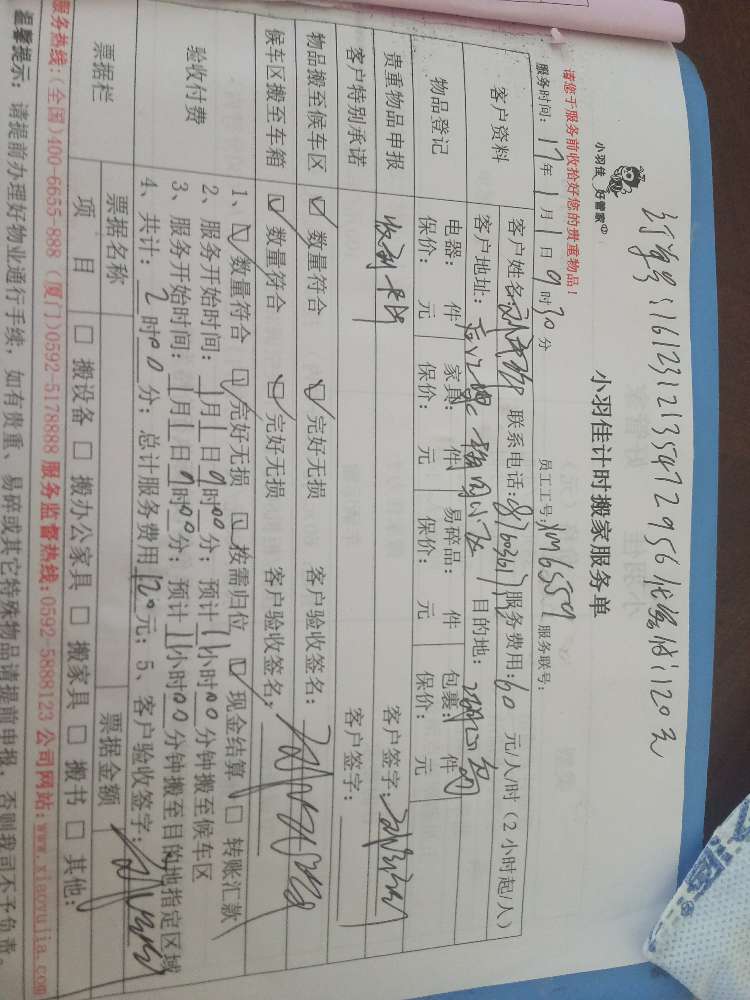 订单号:161231213547295
120元
小羽佳 好管家
小羽佳计时搬家服务单
请您于服务前收拾好您的贵重物品!
服务时间: 17年 1月 1日 9时 30分 员工工号: XM6559 服务联号:
客户资料 客户姓名: 联系电话: 服务费用: 60 元/人/时 (2小时起/人)
客户地址: 目的地:
物品登记 电器: 件 家具: 件 易碎品: 件 包裹: 件
保价: 元 保价: 元 保价: 元 保价: 元
贵重物品申报 客户签字:
客户特别承诺 客户签字:
物品搬至候车区 ☑ 数量符合 ☑ 完好无损 客户验收签名:
候车区搬至车箱 ☑ 数量符合 ☑ 完好无损 客户验收签名:
验收付费 1、☑ 数量符合 ☑ 完好无损 ☑ 按需归位 ☑ 现金结算 □ 转账汇款
2、服务开始时间: 1月1日9时00分; 预计1小时00分钟搬至候车区
3、服务开始时间: 1月1日9时00分; 预计 小时00分钟搬至目的地指定区域
4、共计: 2时00分; 总计服务费用 120元; 5、客户验收签字:
票据栏 票据名称 票据金额
项目 □ 搬设备 □ 搬办公家具 □ 搬家具 □ 搬书 □ 其他:
服务热线:(全国)400-6655-888 (厦门)0592-5178888 服务监督热线:0592-5888123 公司网站:www.xiaoyujia.com
温馨提示: 请提前办理好物业通行手续, 如有贵重、易碎或其它特殊物品请提前申报, 否则我司不予负责。